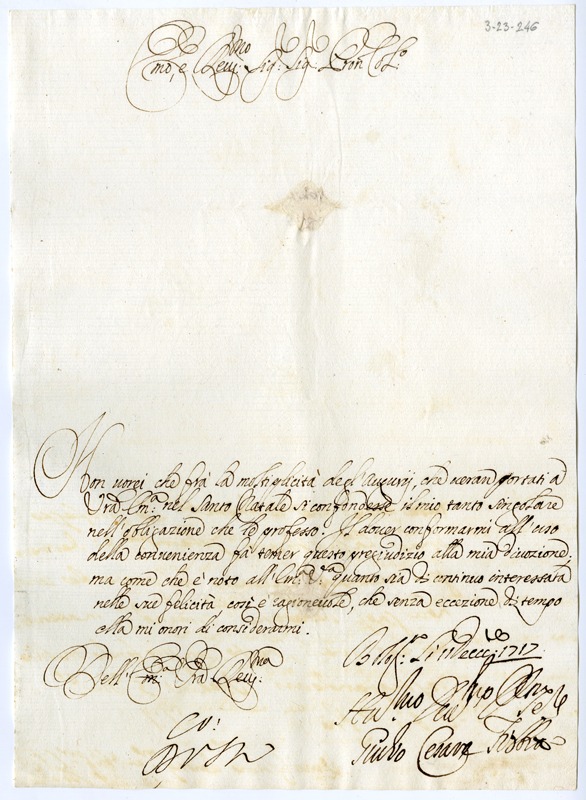 3-23-246
Em̃o, e Reu.mo Sig.r Sig.r Pron Col.mo
Non uorei che frà la moltiplicità degl'Augurij, che ueran portati à
Vrã Em.a nel Santo Natale si confondesse il mio tanto singolare
nell'obligazione che le professo. Il douer conformarmi all'uso
della conuenienza fà temer questo pregiudizio alla mia diuozione;
ma come che è noto all'Em.a V.a quanto sia di continuo interessata
nelle sue felicità, così è ragioneuole, che senza eccezione di tempo
ella mi onori di considerarmi.
Dell'Em.a Vrã Reu.ma
1717
Giulio Cesare